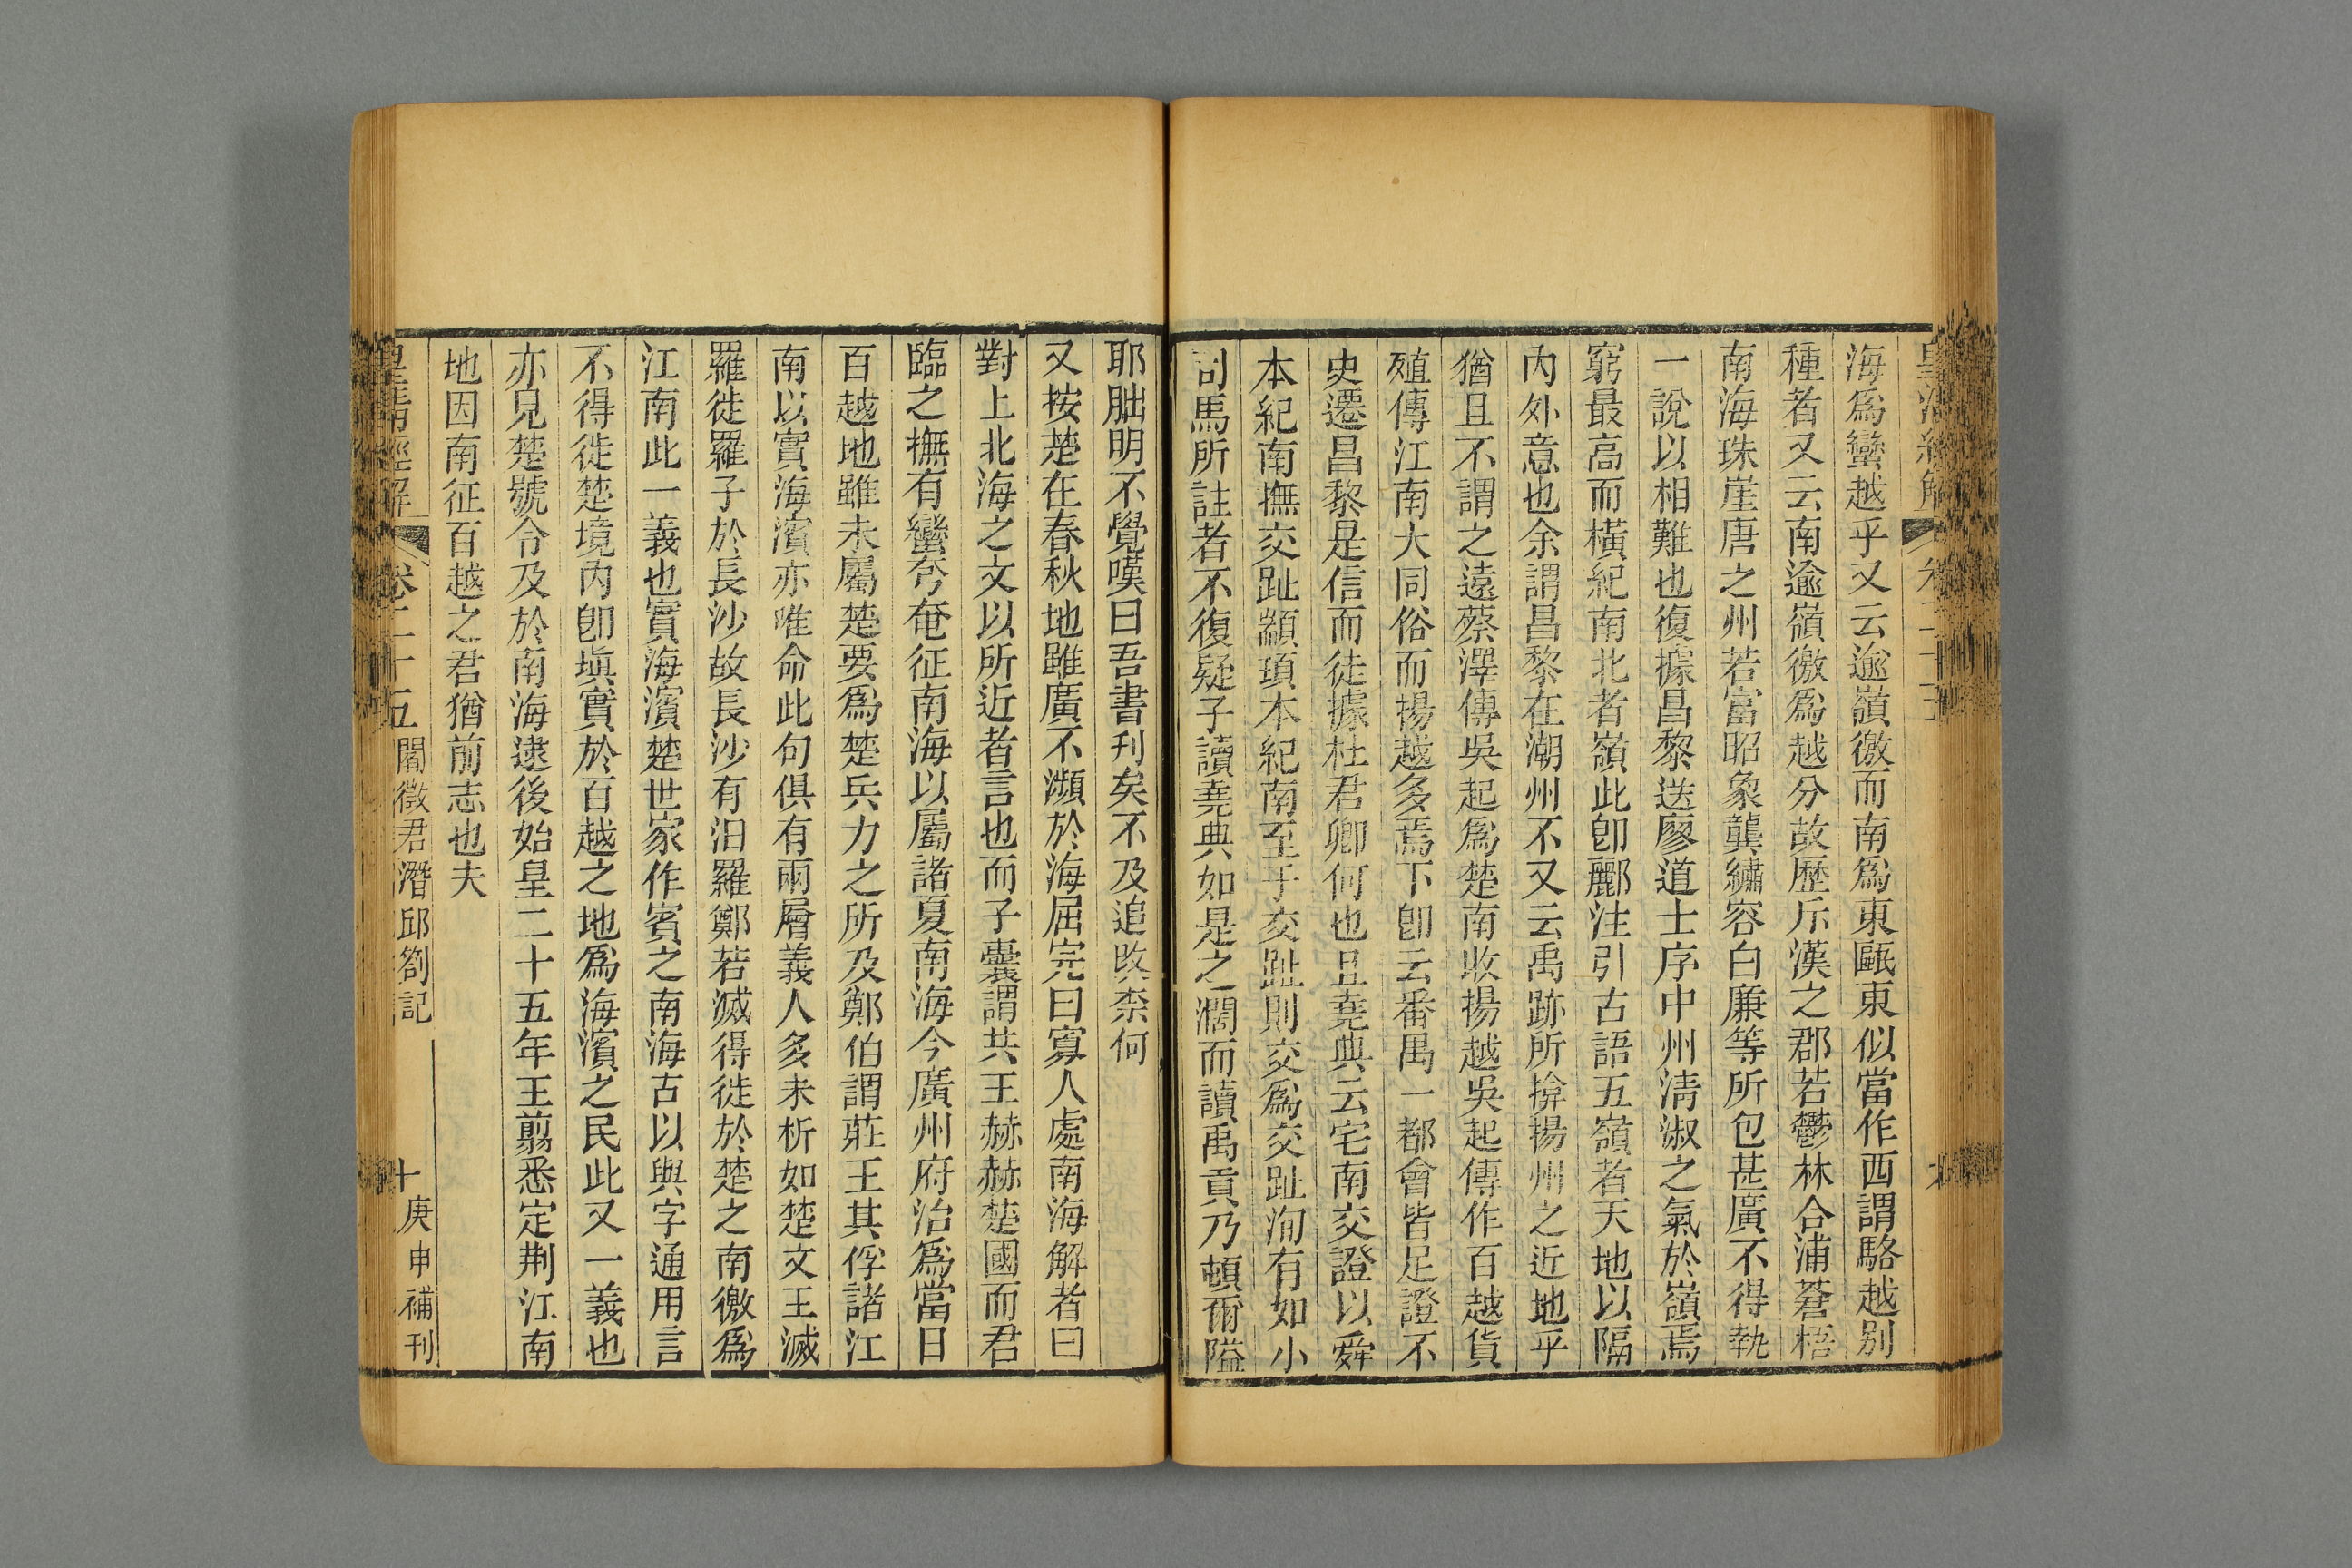 皇清經解
海爲蠻越乎又云逾嶺徼而南爲東甌東似當作西謂駱越别
種者又云南逾嶺徼爲越分故歷斥漢之郡若鬱林合浦蒼梧
南海珠崖唐之州若富昭象龔繡容白廉等所包甚廣不得執
一說以相難也復據昌黎送廖道士序中州淸淑之氣於嶺焉
窮最高而橫紀南北者嶺此卽酈注引古語五嶺者天地以隔
內外意也余謂昌黎在潮州不又云禹跡所揜揚州之近地乎
猶且不謂之遠蔡澤傳吳起爲楚南收揚越吳起傳作百越貨
殖傳江南大同俗而揚越多焉下卽云番禺一都會皆足證不
史遷昌黎是信而徒據杜君卿何也且堯典云宅南交證以舜
本紀南撫交趾顓頊本紀南至于交趾則交爲交趾洵有如小
司馬所註者不復疑子讀堯典如是之濶而讀禹貢乃頓爾隘
耶朏明不覺嘆曰吾書刊矣不及追改柰何
又按楚在春秋地雖廣不瀕於海屈完曰寡人處南海解者曰
對上北海之文以所近者言也而子囊謂共王赫赫楚國而君
臨之撫有蠻夸奄征南海以屬諸夏南海今廣州府治爲當日
百越地雖未屬楚要爲楚兵力之所及鄭伯謂莊王其俘諸江
南以實海濱亦唯命此句俱有兩層義人多未析如楚文王滅
羅徙羅子於長沙故長沙有汨羅鄭若滅得徙於楚之南徼爲
江南此一義也實海濱楚世家作賓之南海古以與字通用言
不得徙楚境內卽塡實於百越之地爲海濱之民此又一義也
亦見楚號令及於南海逮後始皇二十五年王翦悉定荆江南
地因南征百越之君猶前志也夫
皇淸經解
卷二十五
閻徵君潛邱劄記
十
庚申補刊